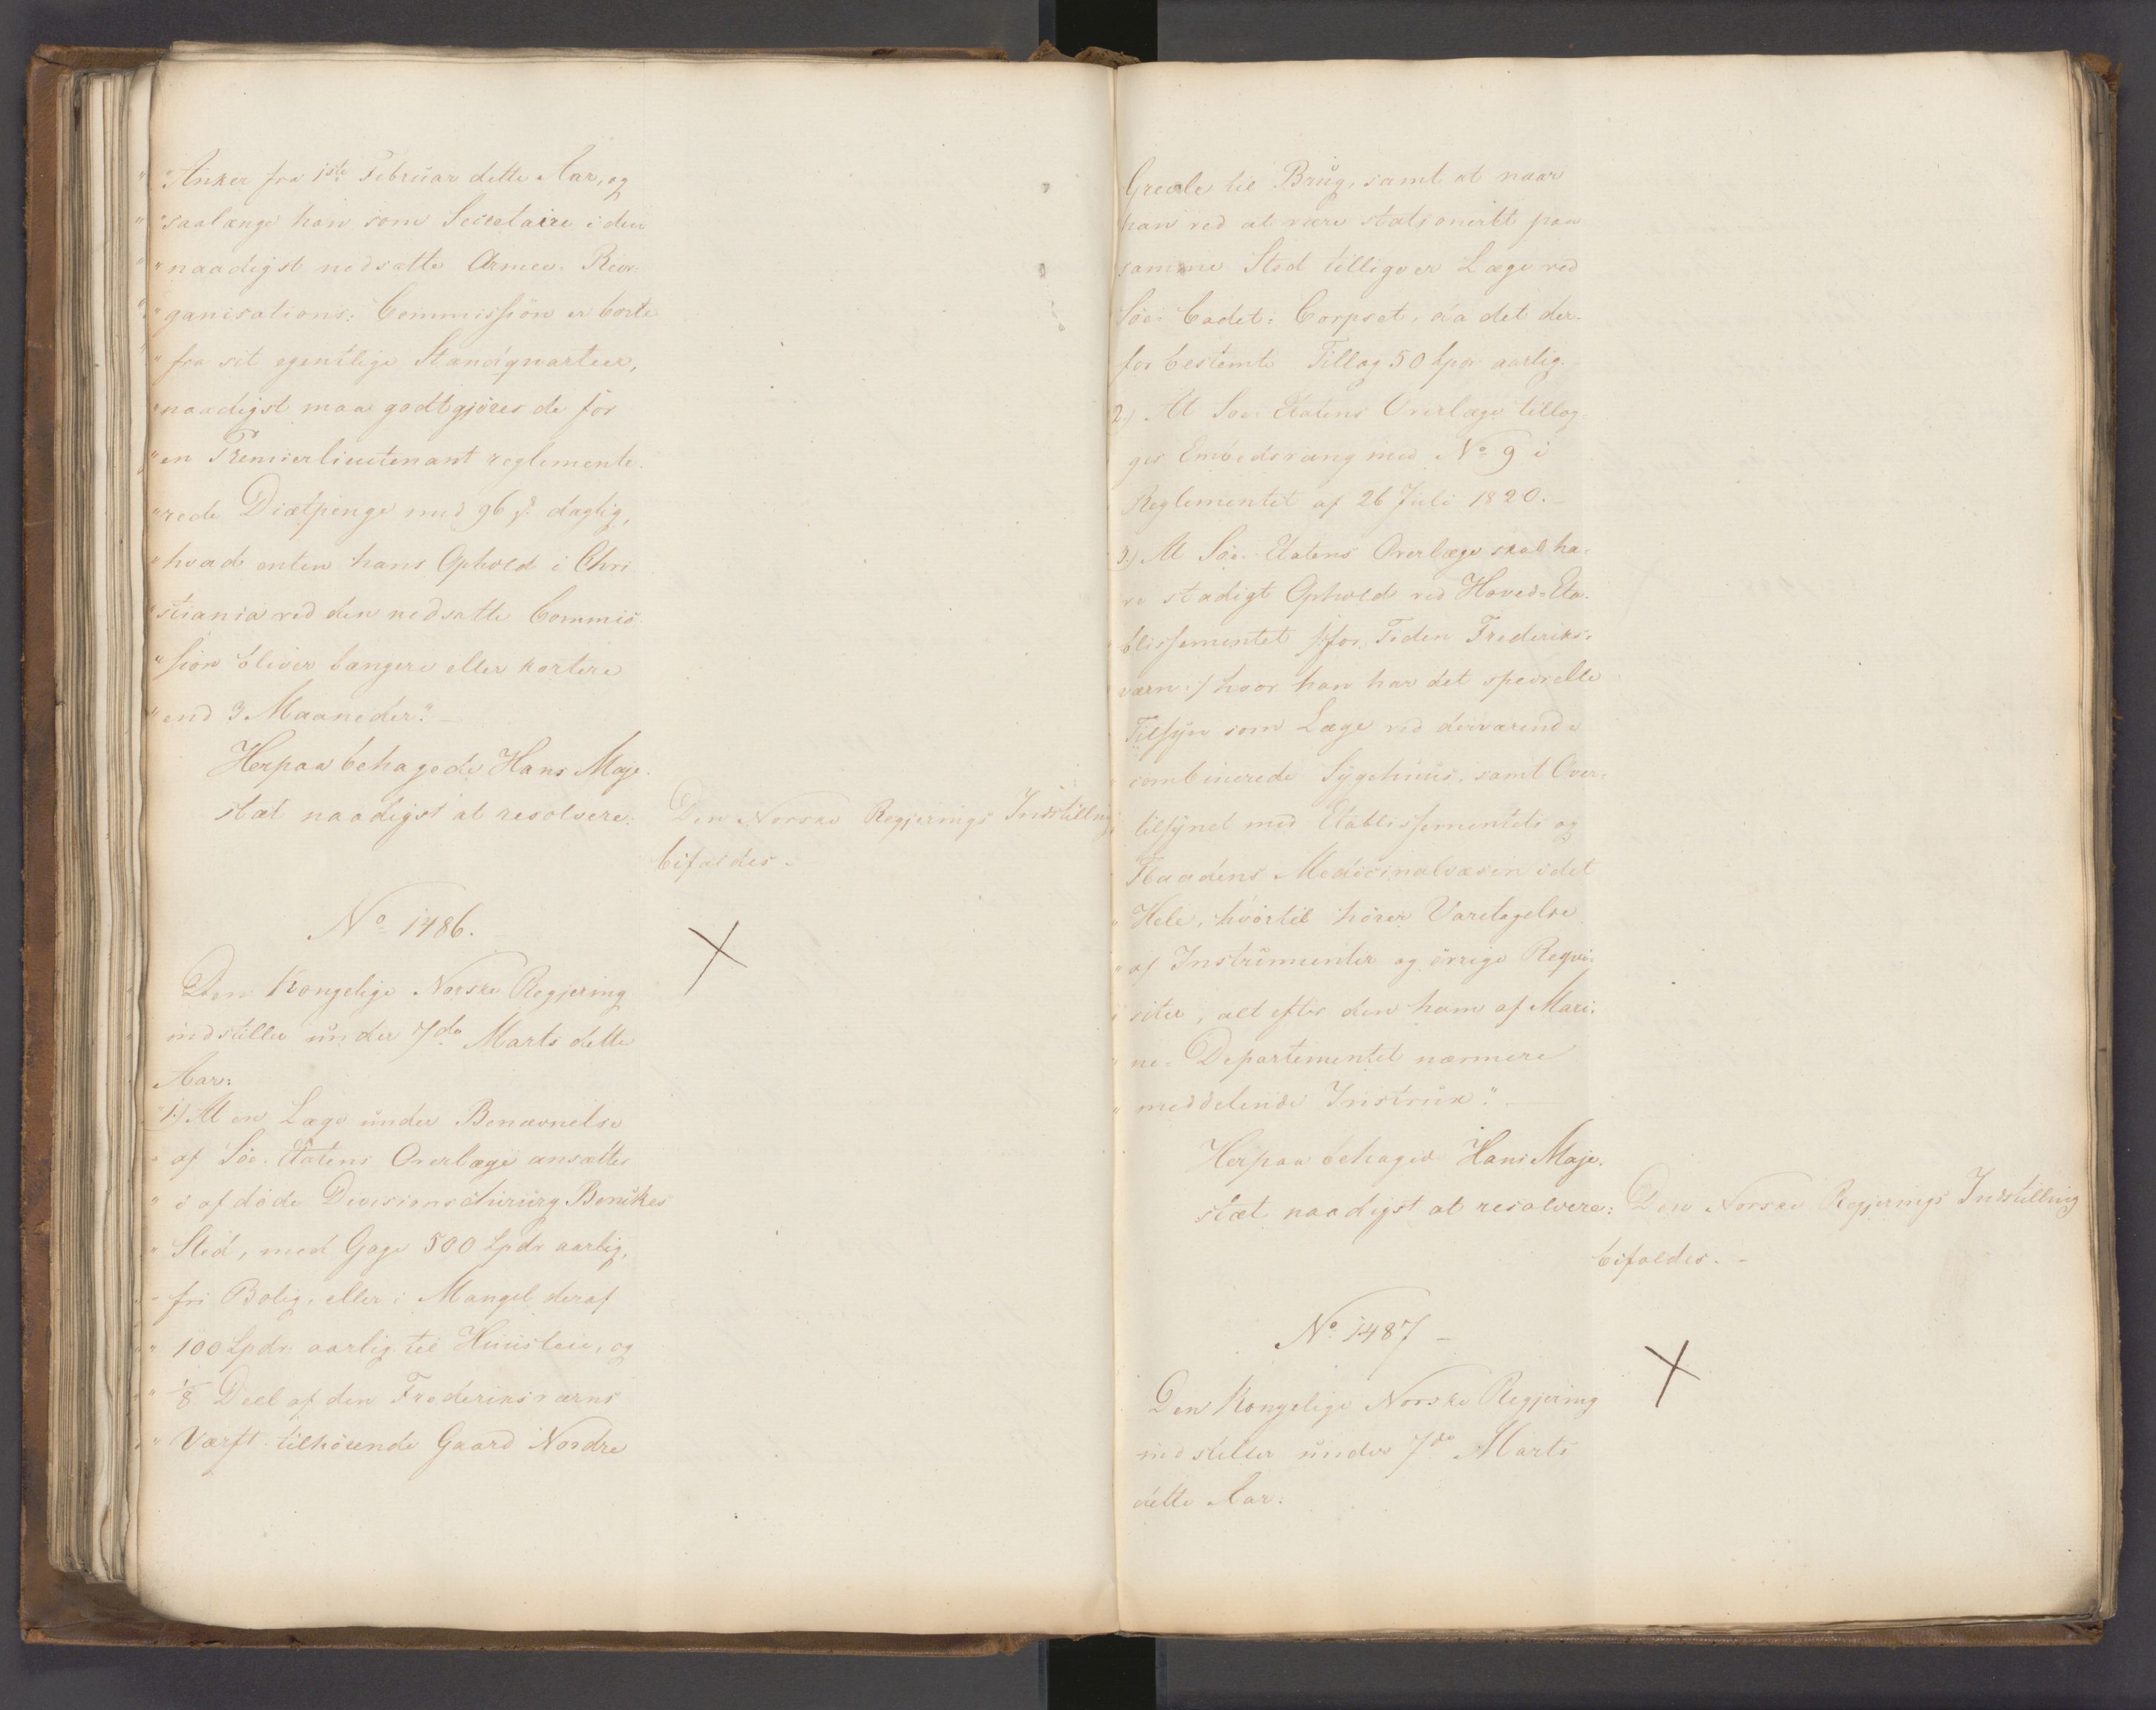 "Anker fra 1ste Februar dette Aar, og
"saalænge han som Secretaire i den
"naadigst nedsatte Armee-Reor-
"ganisations-Commission er borte
"fra sit egentlige Standqvarteer,
"naadigst maa godtgjöres de for
"en Premierlieutenant reglemente-
"rede Diætpenge med 96 s. daglig,
"hvad enten hans Ophold i Chri-
"stiania ved den nedsatte Commis-
"sion bliver længere eller kortere
"end 3 Maaneder."
Herpaa behagede Hans Maje-
stæt naadigst at resolvere:
Den Norske Regjerings Indstilling
bifaldes.
No 1486.
Den Kongelige Norske Regjering
indstiller under 7de Marts dette
Aar:
1.) At en Læge under Benævnelse
" af Söe-Etatens Overlæge ansættes
" i afdöde Divisionschirurg Benikes
" Sted, med Gage 500 Spdr aarlig,
" fri Bolig, eller i Mangel deraf
" 100 Spdr: aarlig til Huusleie, og
" 1/8 Deel af den Frederiksværns
" Værft tilhörende Gaard Nordre
Grevle til Brug, samt at naar
han ved at være stationeret paa
samme Sted tillige er Læge ved
Söe-Cadet-Corpset, da det der-
for bestemte Tillæg 50 Spdr aarlig.
2.) At Söe-Etatens Overlæge tillæg-
ges Embedsrang med No 9 i
Reglementet af 26 Juli 1820.
3.) At Söe-Etatens Overlæge skal ha-
ve stadigt Ophold ved Hoved-Eta-
blissementet /:for Tiden Frederiks-
værn:/ hvor han har det specielle
Tilsyn som Læge ved derværende
combinerede Sygehuus, samt Over-
tilsynet med Etablissementets og
Flaadens Medicinalvæsen i det
" Hele, hvortil hörer Varetagelse
" af Instrumenter og övrige Reqvi-
" siter, alt efter den ham af Mari-
" ne-Departementet nærmere
" meddelende Instrux."
Herpaa behaged Hans Maje-
stæt naadigst at resolvere:
Den Norske Regjerings Indstilling
bifaldes.
No 1487
Den Kongelige Norske Regjering
indstiller under 7de Marts
dette Aar: